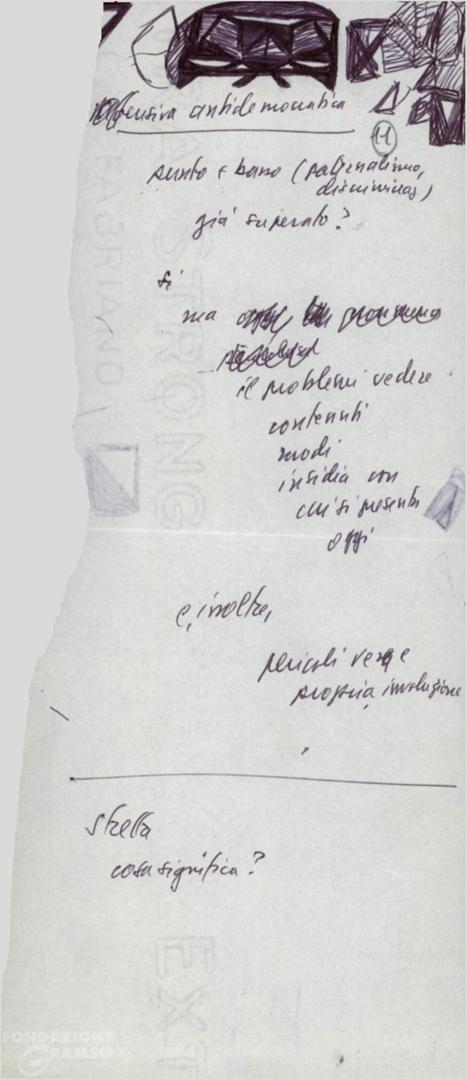 offensiva antidemocratica
11
punto + basso (paternalismo,
discriminaz)
già superato?
si
ma
il problemi vedere
contenuti
modi
insidia con
cui si presenta
oggi
e, inoltre,
pericoli vera e
propria involuzione
stretta
cosa significa?
FABRIANO
STRONG
EXT
FONDAZIONE
GRAMSCI